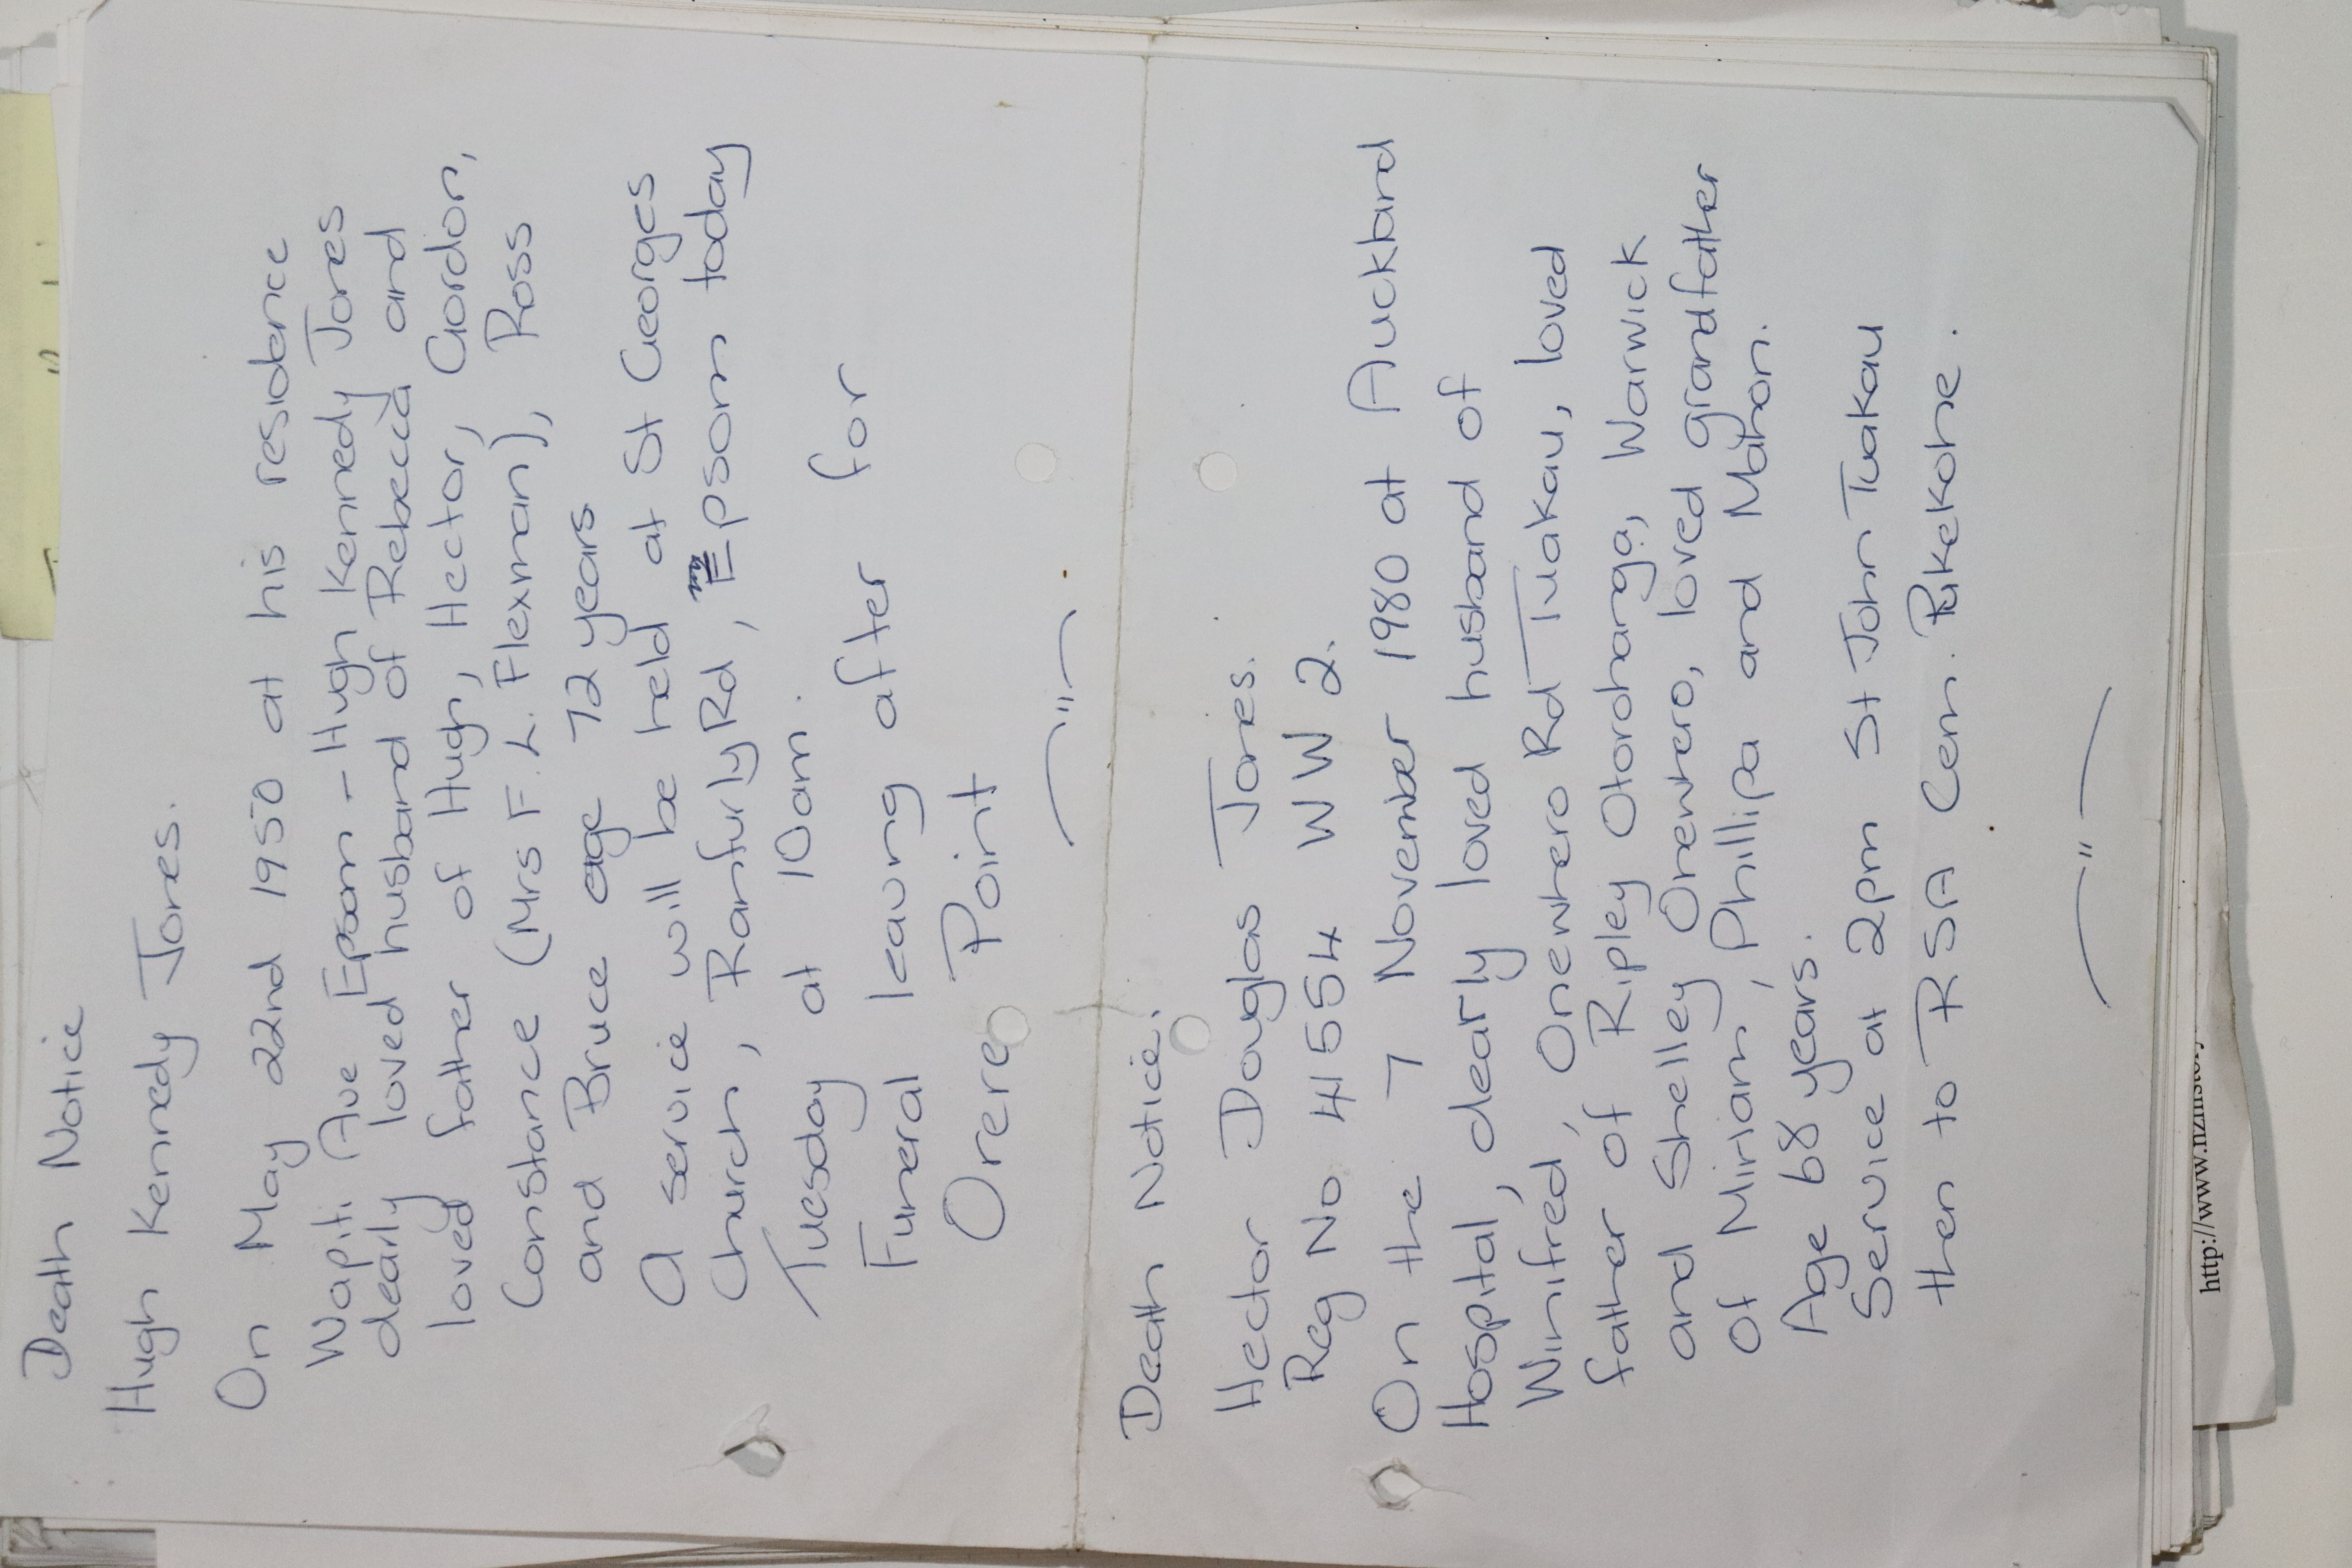 Death Notice
Hugh Kennedy Jones.
On May 22nd 1950 at his residence
Wapiti Ave Epsom - Hugh Kennedy Jones
dearly loved husband of Rebecca and
loved father of Hugh, Hector, Gordon,
Constance (Mrs F. L. Flexman), Ross
and Bruce age 72 years
A service will be held at St Georges
Church, Ranfurly Rd, Epsom today
Tuesday at 10am.
Funeral leaving after for
Orere Point
— " —
Death Notice.
Hector Douglas Jones.
Reg No 41554 WW2.
On the 7 November 1980 at Auckland
Hospital, dearly loved husband of
Winifred, Onewhero Rd Tuakau, loved
father of Ripley Otorohanga, Warwick
and Shelley Onewhero, loved grandfather
of Miriam, Phillipa and Mahon.
Age 68 years.
Service at 2pm St John Tuakau
then to RSA Cem. Pukekohe.
— " —
http://www.nzhistory